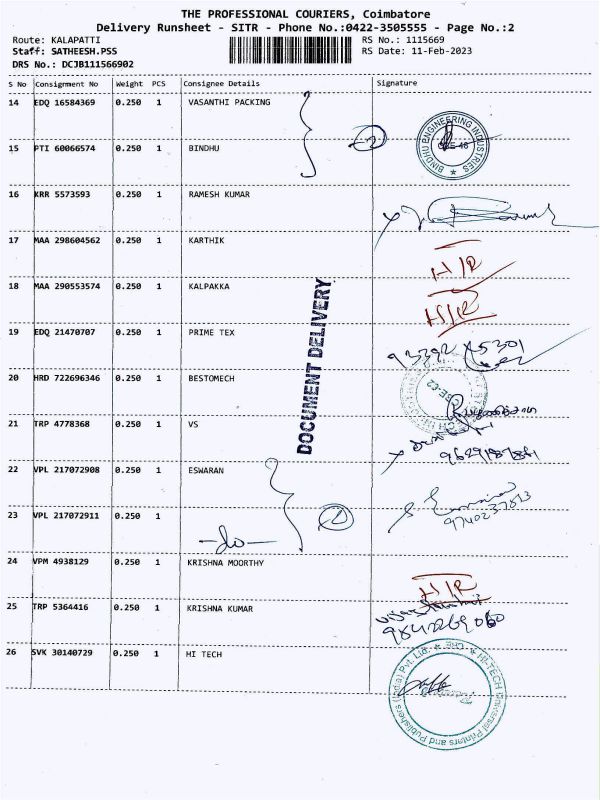 THE PROFESSIONAL COURIERS, Coimbatore
Delivery Runsheet - SITR - Phone No.:0422-3505555 - Page No.:2
Route: KALAPATTI RS No.: 1115669
Staff: SATHEESH.PSS RS Date: 11-Feb-2023
DRS No.: DCJB111566902
S No Consignment No Weight PCS Consignee Details Signature
14 EDQ 16584369 0.250 1 VASANTHI PACKING
15 PTI 60066574 0.250 1 BINDHU
2
BINDHU ENGINEERING INDUSTRIES
CBE-48
16 KRR 5573593 0.250 1 RAMESH KUMAR
17 MAA 298604562 0.250 1 KARTHIK
H/R
18 MAA 290553574 0.250 1 KALPAKKA
H/R
DOCUMENT DELIVERY
19 EDQ 21470707 0.250 1 PRIME TEX
93392 45301
20 HRD 722696346 0.250 1 BESTOMECH
21 TRP 4778368 0.250 1 VS
22 VPL 217072908 0.250 1 ESWARAN
9740237873
23 VPL 217072911 0.250 1
-do-
2
24 VPM 4938129 0.250 1 KRISHNA MOORTHY
H/R
25 TRP 5364416 0.250 1 KRISHNA KUMAR
9842269060
26 SVK 30140729 0.250 1 HI TECH
HI-TECH Universal Printers and Publishers (India) Pvt. Ltd. CBE